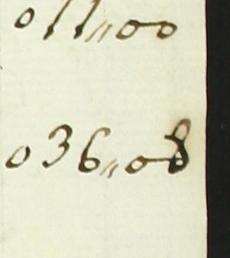 011,,00
036,,08